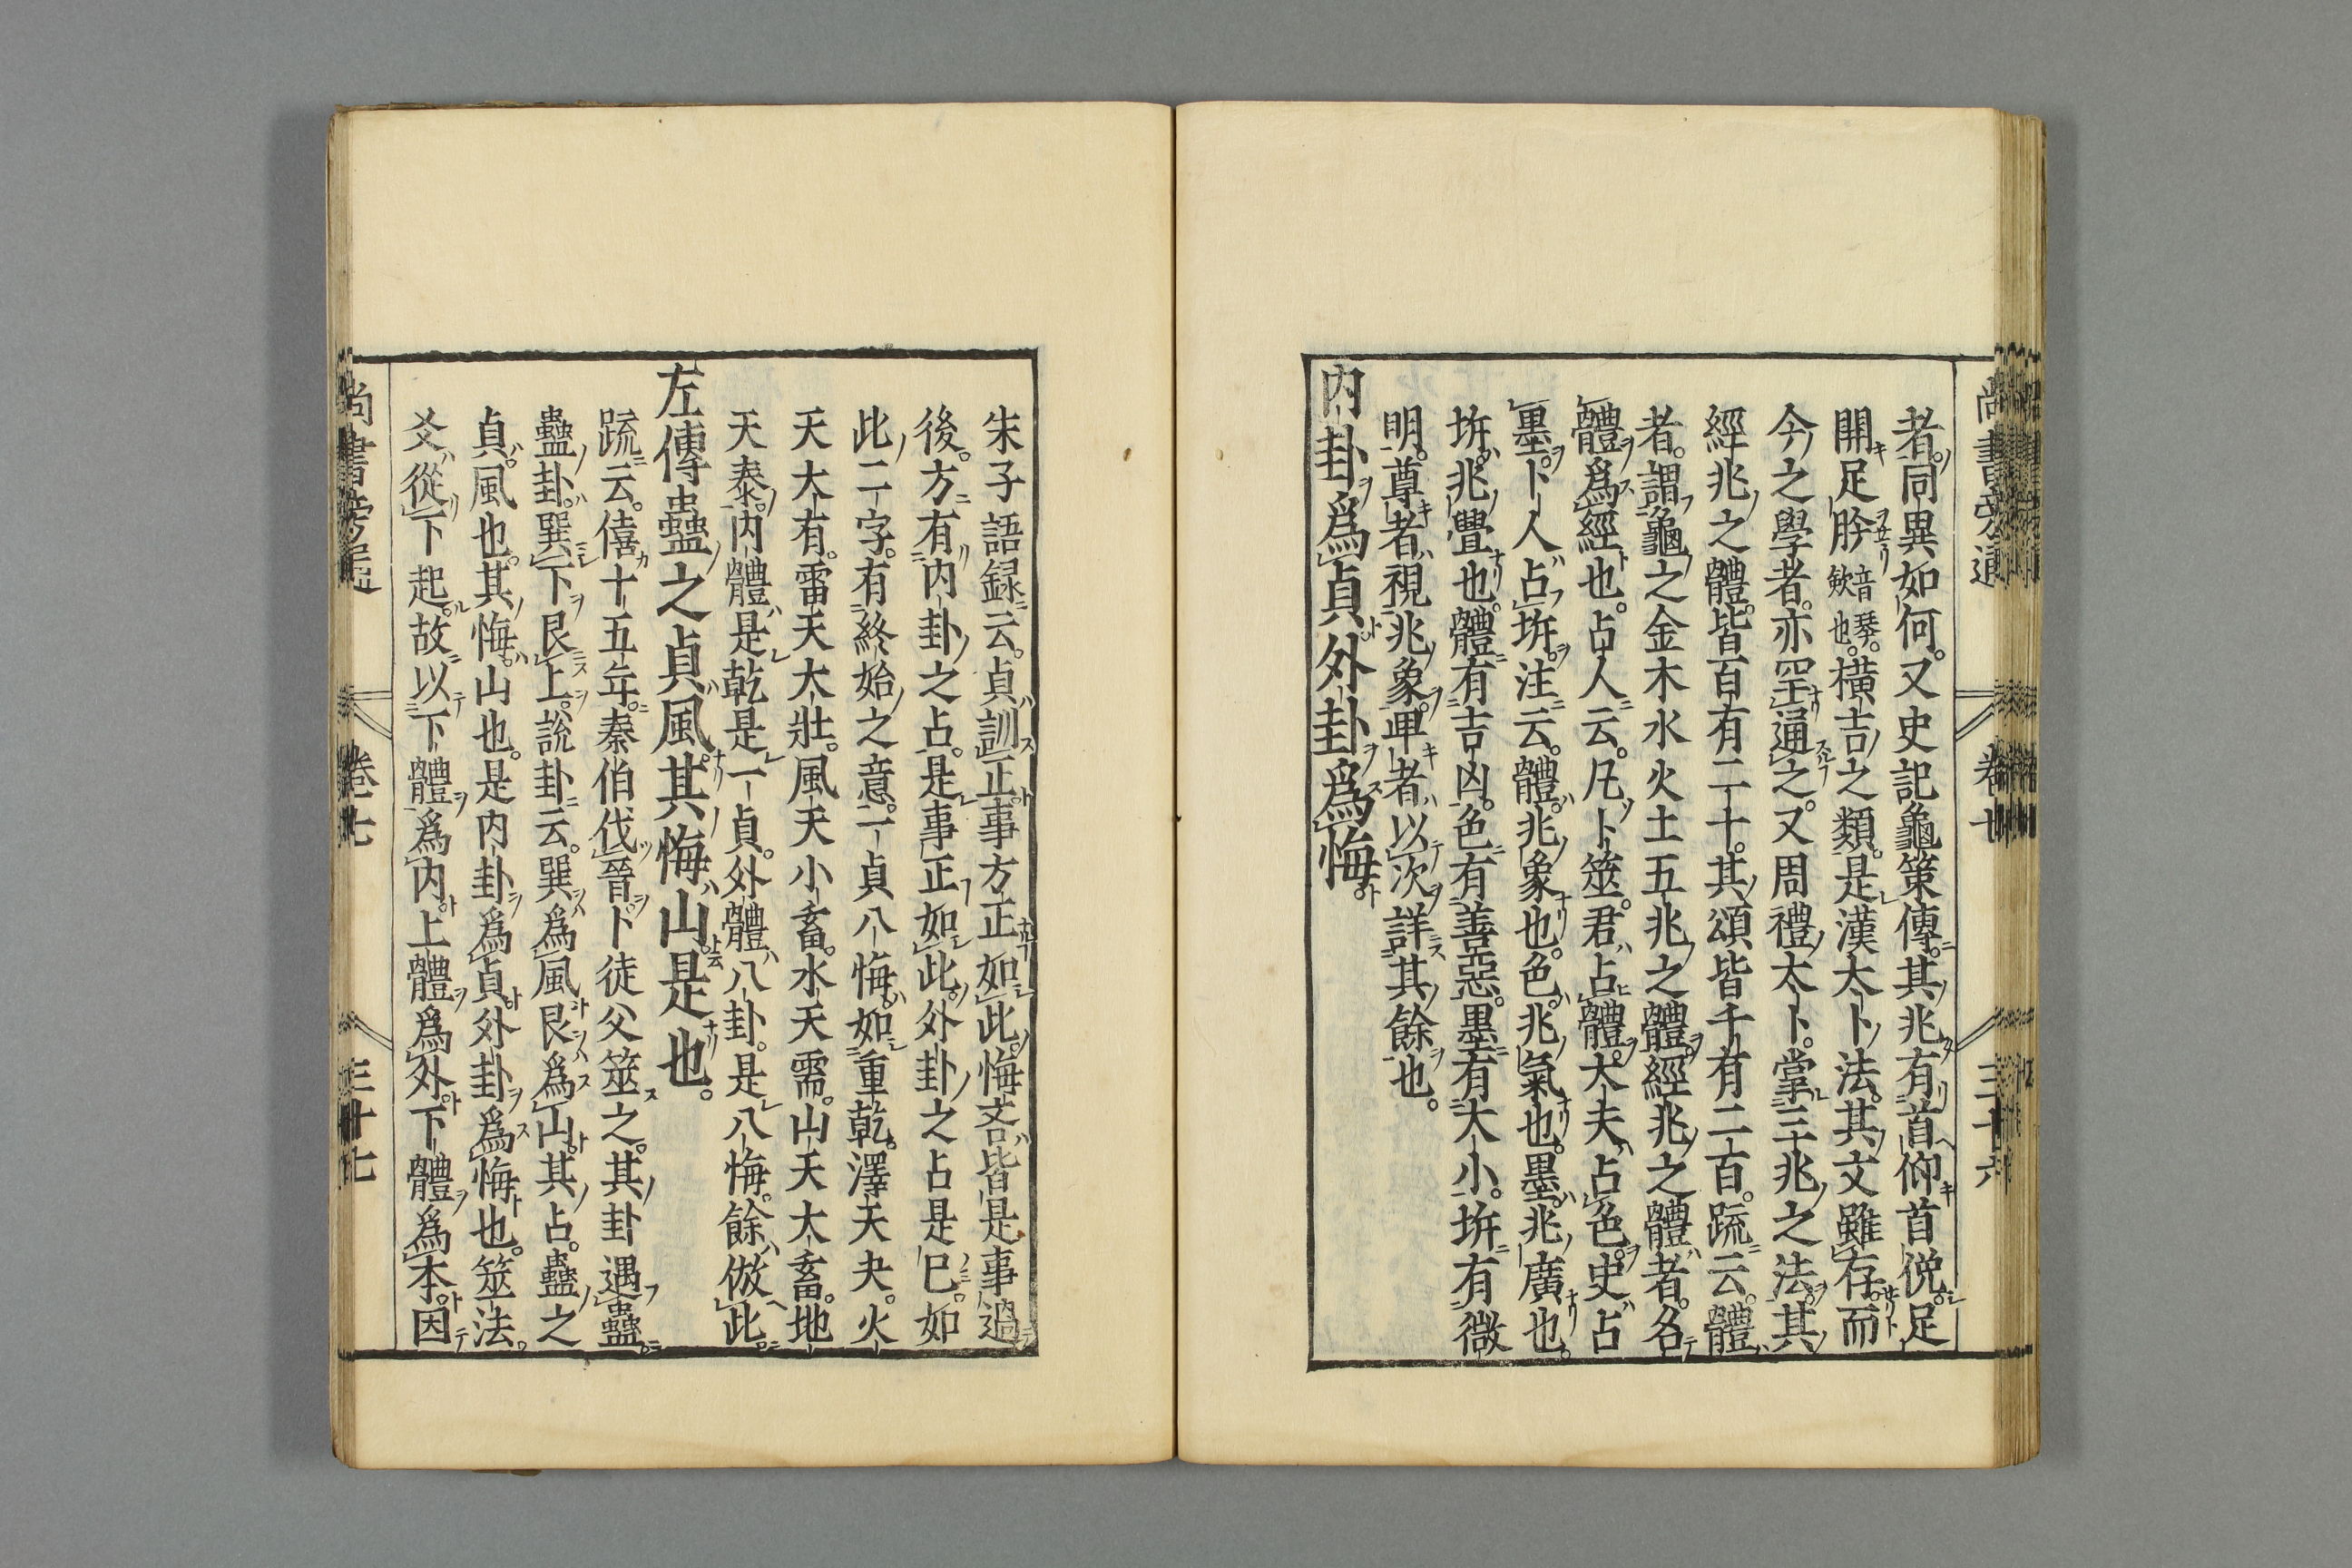 尚書旁通 卷七 三十六
者。同異如何。又史記龜策傳。其兆有首仰首俛。足
開足肣音琴。欽也。橫吉之類。是漢太卜法。其文雖存。而
今之學者。亦罕通之。又周禮太卜。掌三兆之法。其
經兆之體。皆百有二十。其頌皆千有二百。疏云。體
者。謂龜之金木水火土五兆之體。經兆之體者。名
體爲經也。占人云。凡卜筮。君占體。大夫占色。史占
墨。卜人占坼。注云。體。兆象也。色。兆氣也。墨。兆廣也。
坼。兆舋也。體有吉凶。色有善惡。墨有大小。坼有微
明。尊者視兆象。卑者以次詳其餘也。
内卦爲貞。外卦爲悔。
朱子語録云。貞訓正。事方正如此。悔吝。皆是事過
後。方有内卦之占。是事正如此。外卦之占是已如
此二字。有終始之意。一貞八悔。如重乾。澤天夬。火
天大有。雷天大壯。風天小畜。水天需。山天大畜。地
天泰。内體是乾是一貞。外體八卦。是八悔。餘倣此。
左傳蠱之貞風。其悔山是也。
疏云。僖十五年。秦伯伐晉。卜徒父筮之。其卦遇蠱。
蠱卦。巽下艮上。說卦云。巽爲風艮爲山。其占。蠱之
貞。風也。其悔。山也。是内卦爲貞。外卦爲悔也。筮法。
爻從下起。故以下體爲内。上體爲外。下體爲本。因
尚書旁通 卷七 三十七